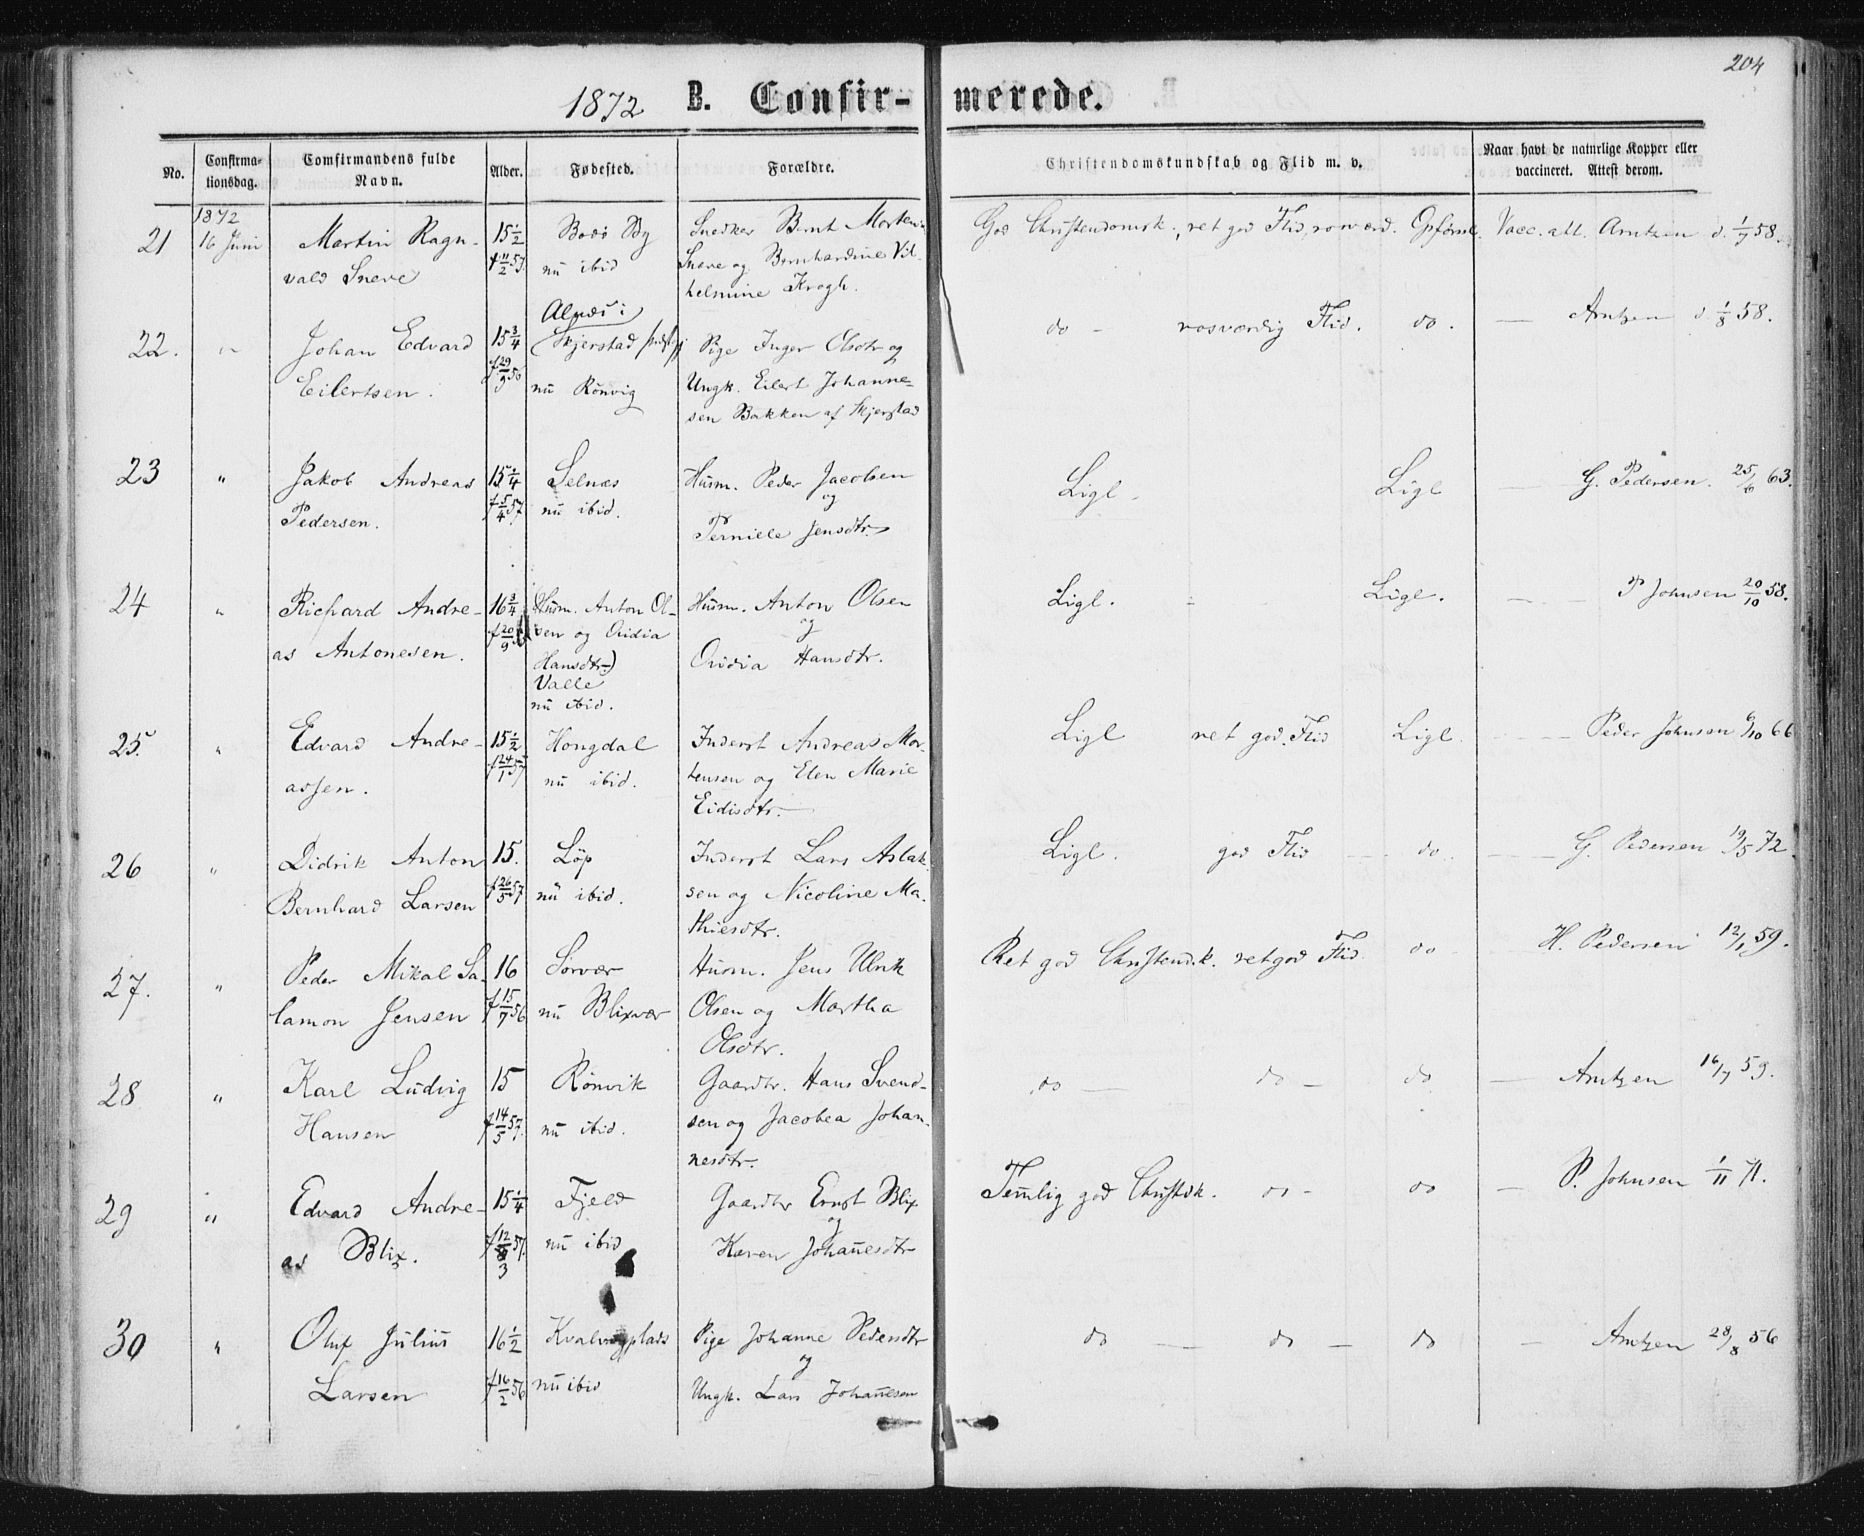 204
1872 B. Confirmerede.
No. Confirmationsdag. Comfirmandens fulde Navn. Alder. Fødested. Forældre. Christendomskundskab og Flid m. v. Naar havt de naturlige Kopper eller vaccineret. Attest derom.
1872
21 16 Juni Martin Ragn- 15 1/2 Bodø By Snedker Bernt Morten God Christendomsk., ret god Flid, rosværd. Opførsel. Vacc. att. Arntzen d. 1/7 58.
vald Sneve f 11/2 57. nu ibid Sneve og Bernhardine Vil-
helmine Krogh.
22. " Johan Edvard 15 3/4 Alnes i Skjerstad Pige Inger Olsdtr og do - rosværdig Flid. do. — Arntzen d 1/8 58.
Eilertsen. f 29/9 56 nu Rönvig Ungk. Eilert Johanne-
sen Bakken af Skjerstad
23 " Jakob Andreas 15 1/4 Selnæs Husm. Peder Jacobsen Ligl. Ligl — G. Pedersen. 25/6 63.
Pedersen. f 5/4 57 nu ibid. og
Pernille Jensdtr.
24 " Richard Andre- 16 3/4 (Husm. Anton Ol- Husm. Anton Olsen Ligl. Ligl. — P Johnsen 20/10 58.
as Antonesen. f 20/9 sen og Ovidia og
Hansdtr.) Ovidia Hansdtr.
Valle
nu ibid.
25. " Edvard Andre- 15 1/2 Hongdal Inderst Andreas Mor- Ligl ret god Flid Ligl. — Peder Johnsen 6/10 66
assen. f 24/1 57 nu ibid. tensen og Elen Marie
Eidisdtr.
26 " Didrik Anton 15. Löp Inderst Lars Aslak- Ligl. god Flid — do. — G. Pedersen 19/5 72.
Bernhard Larsen f 26/5 57 nu ibid. sen og Nicoline Ma-
thiesdtr.
27. " Peder Mikal Sa- 16 Sörvær Husm. Jens Ulrik Ret god Christendsk. ret god Flid. do — H. Pedersen 12/1 59.
lamon Jensen f 15/7 56 nu Blixvær Olsen og Martha
Olsdtr.
28 " Karl Ludvig 15 Rönvik Gaardbr. Hans Svend- do — do — do — Arntzen 16/7 59.
Hansen f 14/5 57. nu ibid. sen og Jacobea Johan-
nesdtr.
29 " Edvard Andre- 15 1/4 Fjeld Gaardbr Ernst Blix Temlig god Christdk. do - do — P. Johnsen 1/11 71.
as Blix. f 12/3 57. nu ibid og
Karen Johañesdtr
30 " Oluf Julius 16 1/2 Kvalvogplads Pige Johanne Pedersdtr do — do — do — Arntzen 28/8 56
Larsen f 16/2 56 nu ibid og
Ungk. Lars Johañesen